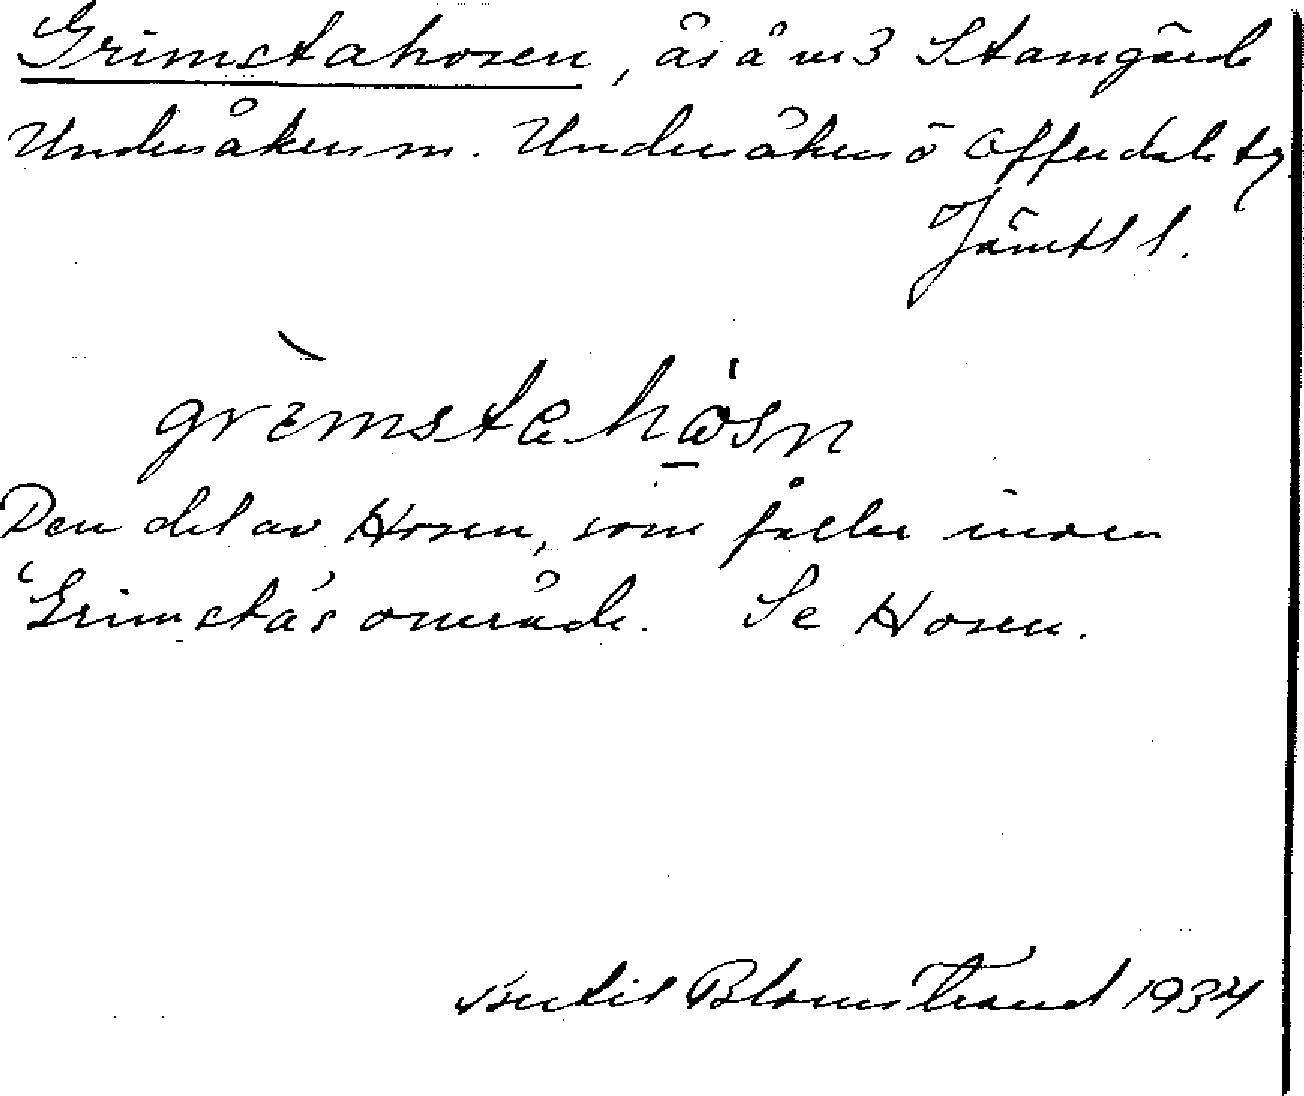 Grimstahosen, ås å nr 3 Stamgärde
Undersåkers sn. Undersåkers o Offerdals tg
Jämtl l.
grèmstahåsn
Den del av Hosen, som faller inom
Grimsta's område. Se Hosen.
Bertil Blomstrand 1934